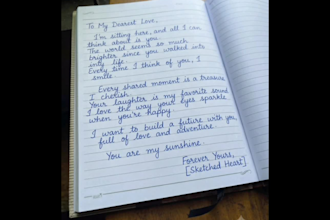 To My Dearest Love,
I'm sitting here, and all I can
think about is you.
The world seems so much
brighter since you walked into
my life.
Every time I think of you, I
smile
Every shared moment is a treasure
I cherish.
Your laughter is my favorite sound
I love the way your eyes sparkle
when you're happy
I want to build a future with you,
full of love and adventure
You are my sunshine
Forever Yours,
[Sketched Heart]